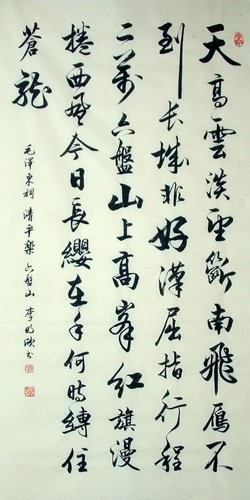 天高雲淡望斷南飛雁不
到长城非好漢屈指行程
二萬六盤山上高峯紅旗漫
捲西風今日長纓在手何時縛住
蒼龍
毛澤東詞 清平樂 六盤山 李明